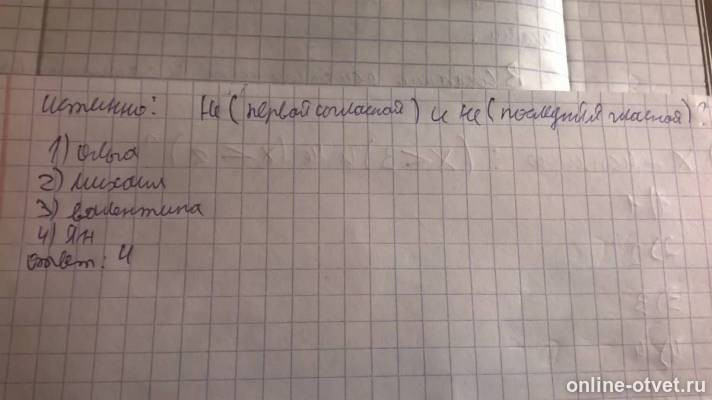 истинно: Не (первой согласной) и не (последняя гласной)?
1) ольга
2) михаил
3) валентина
4) Ян
ответ: 4
online-otvet.ru